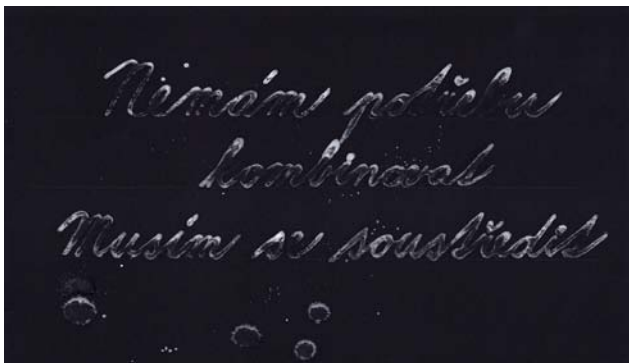 Nemám potřebu
kombinovat
Musím se soustředit